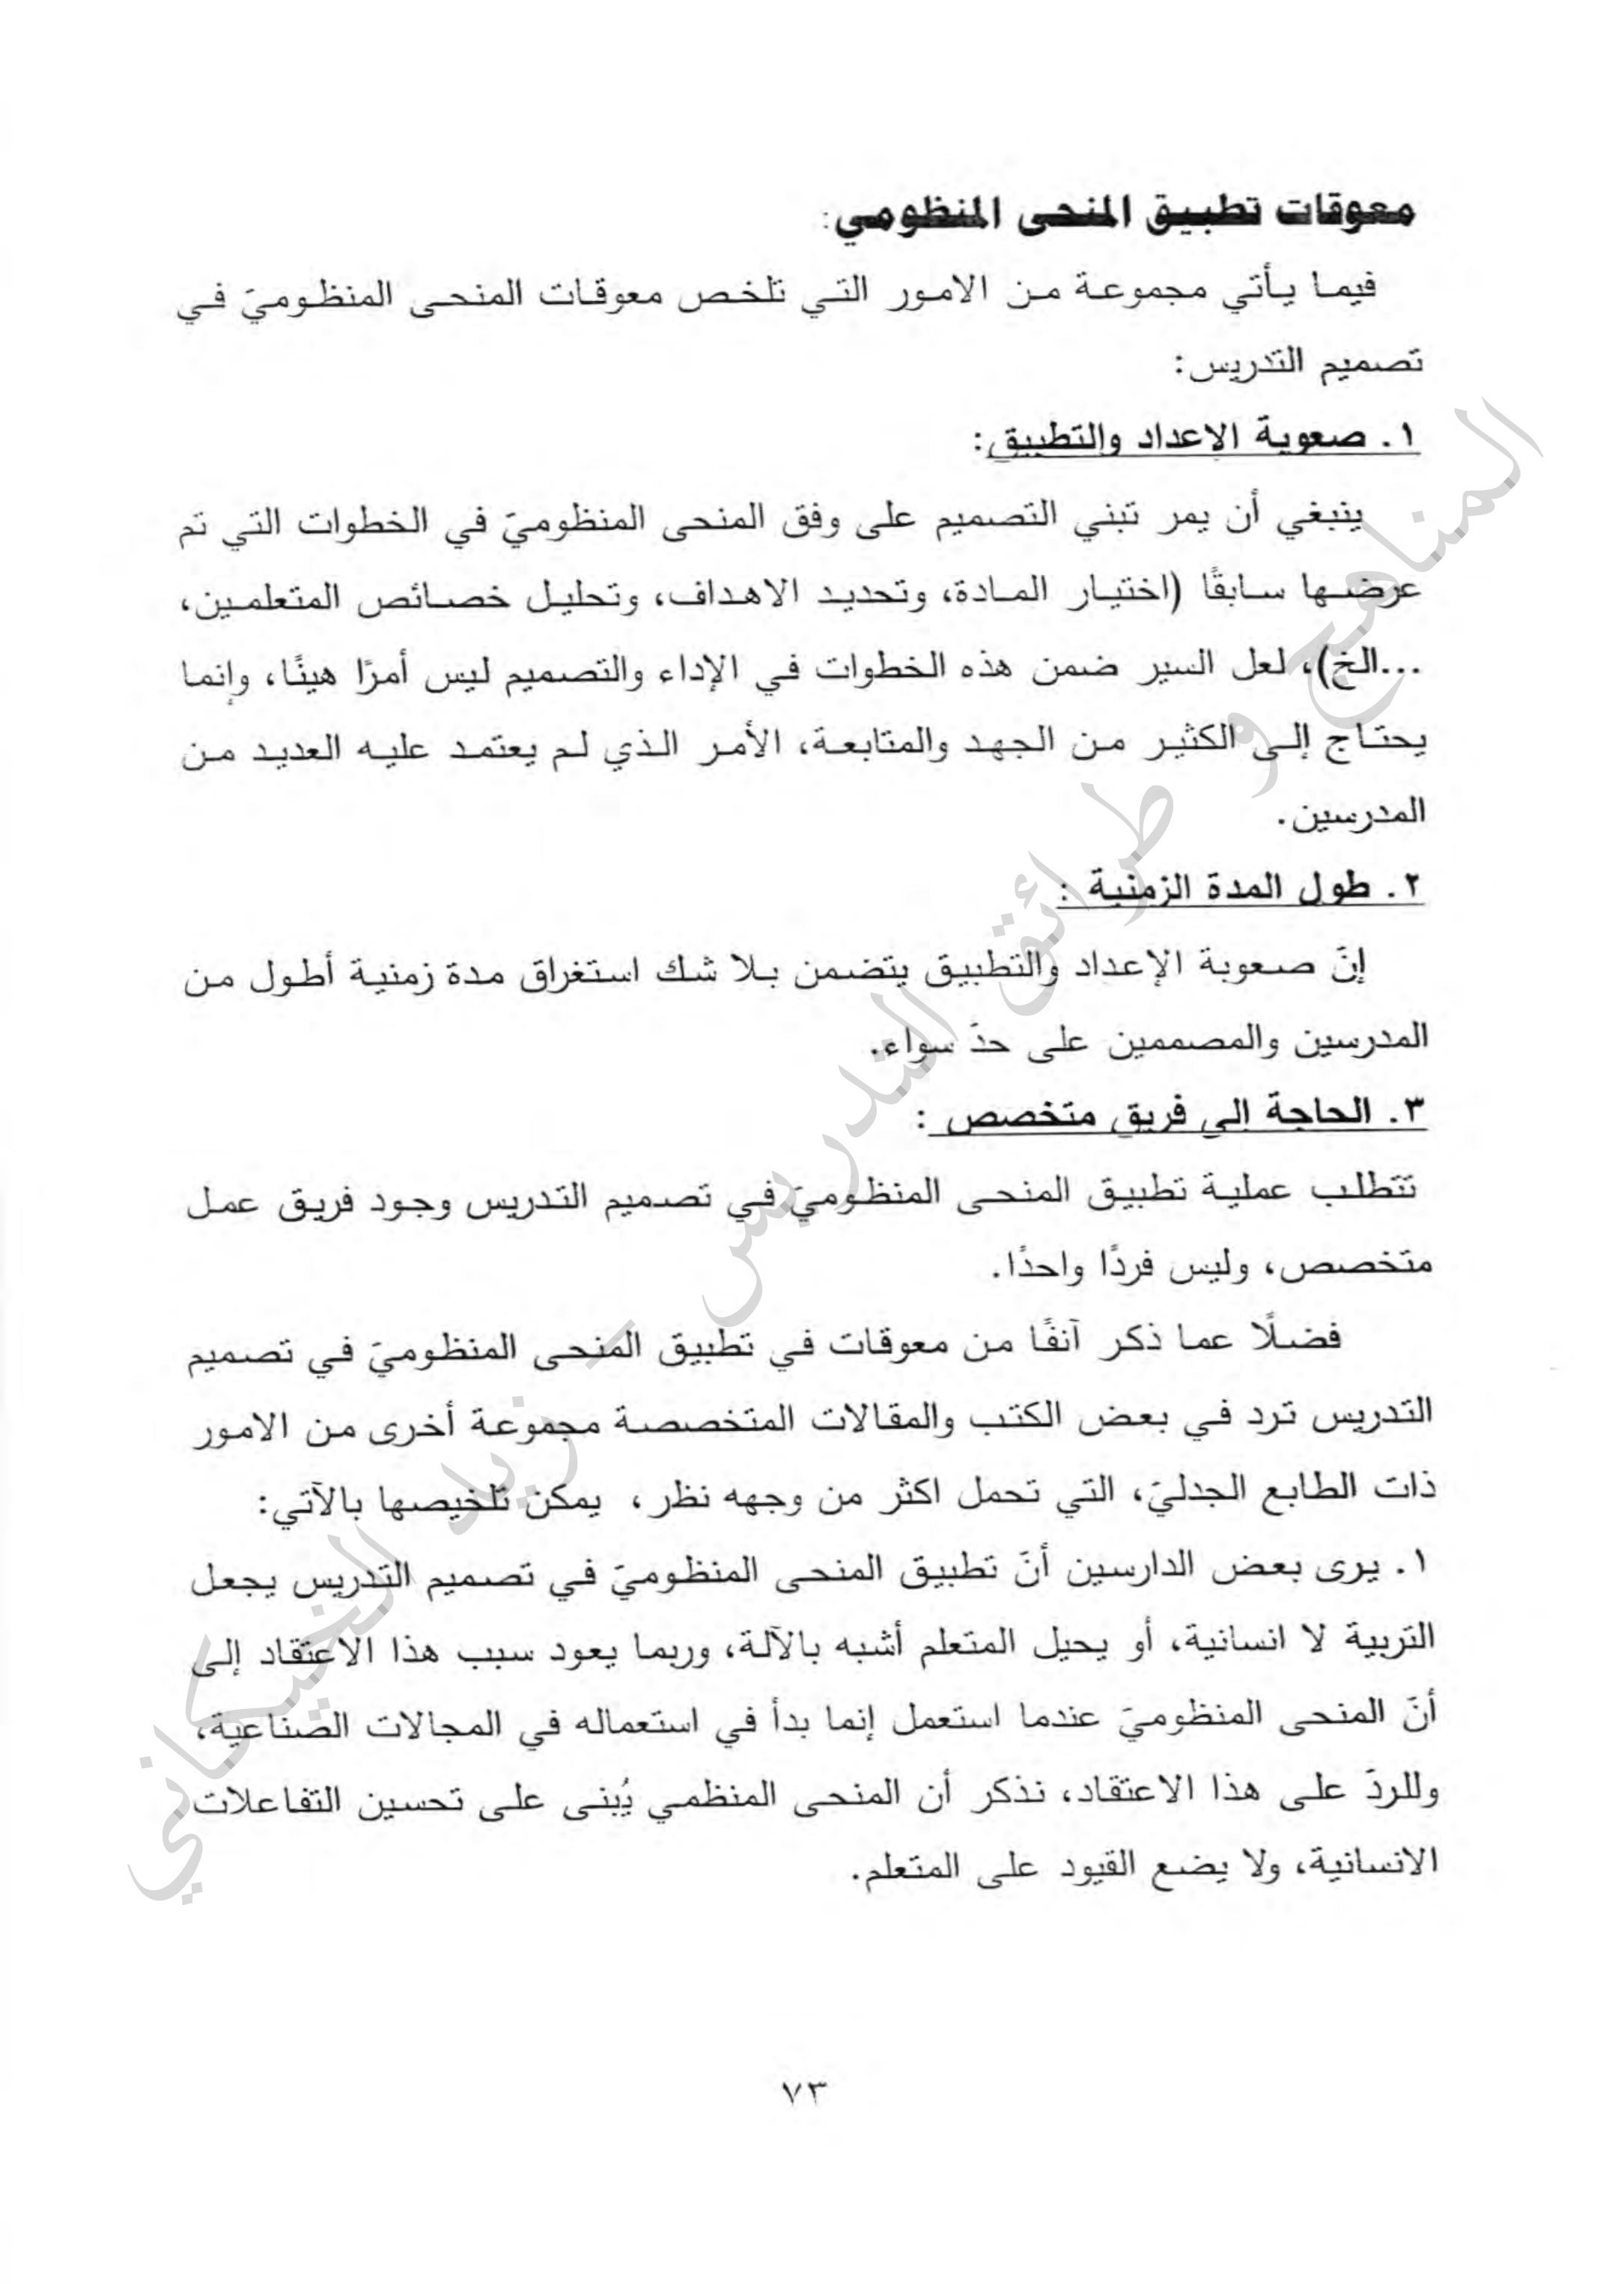 معوقات تطبيق المنحى المنظومي:
فيما يأتي مجموعة من الامور التي تلخص معوقات المنحى المنظوميّ في
تصميم التدريس:
١. صعوبة الاعداد والتطبيق:
ينبغي أن يمر تبني التصميم على وفق المنحى المنظوميّ في الخطوات التي تم
عرضها سابقًا (اختيار المادة، وتحديد الاهداف، وتحليل خصائص المتعلمين،
...الخ)، لعل السير ضمن هذه الخطوات في الإداء والتصميم ليس أمرًا هينًا، وإنما
يحتاج إلى الكثير من الجهد والمتابعة، الأمر الذي لم يعتمد عليه العديد من
المدرسين.
٢. طول المدة الزمنية :
إنّ صعوبة الإعداد والتطبيق يتضمن بلا شك استغراق مدة زمنية أطول من
المدرسين والمصممين على حدّ سواء.
٣. الحاجة إلى فريق متخصص :
تتطلب عملية تطبيق المنحى المنظوميّ في تصميم التدريس وجود فريق عمل
متخصص، وليس فردًا واحدًا.
فضلًا عما ذكر آنفًا من معوقات في تطبيق المنحى المنظوميّ في تصميم
التدريس ترد في بعض الكتب والمقالات المتخصصة مجموعة أخرى من الامور
ذات الطابع الجدليّ، التي تحمل اكثر من وجهه نظر، يمكن تلخيصها بالآتي:
١. يرى بعض الدارسين أنّ تطبيق المنحى المنظوميّ في تصميم التدريس يجعل
التربية لا انسانية، أو يحيل المتعلم أشبه بالآلة، وربما يعود سبب هذا الاعتقاد إلى
أنّ المنحى المنظوميّ عندما استعمل إنما بدأ في استعماله في المجالات الصناعية،
وللردّ على هذا الاعتقاد، نذكر أن المنحى المنظمي يُبنى على تحسين التفاعلات
الانسانية، ولا يضع القيود على المتعلم.
٧٣
المناهج و طرائق التدريس - زياد الخيكاني